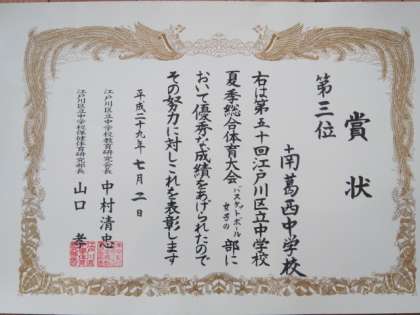 賞状
第三位
南葛西中学校
右は第五十回江戸川区立中学校
夏季総合体育大会バスケットボール女子の部に
おいて優秀な成績をあげられたので
その努力に対しこれを表彰します
平成二十九年七月二日
江戸川区立中学校教育研究会長 中村清忠
江戸川区立中学校保健体育研究部長 山口孝